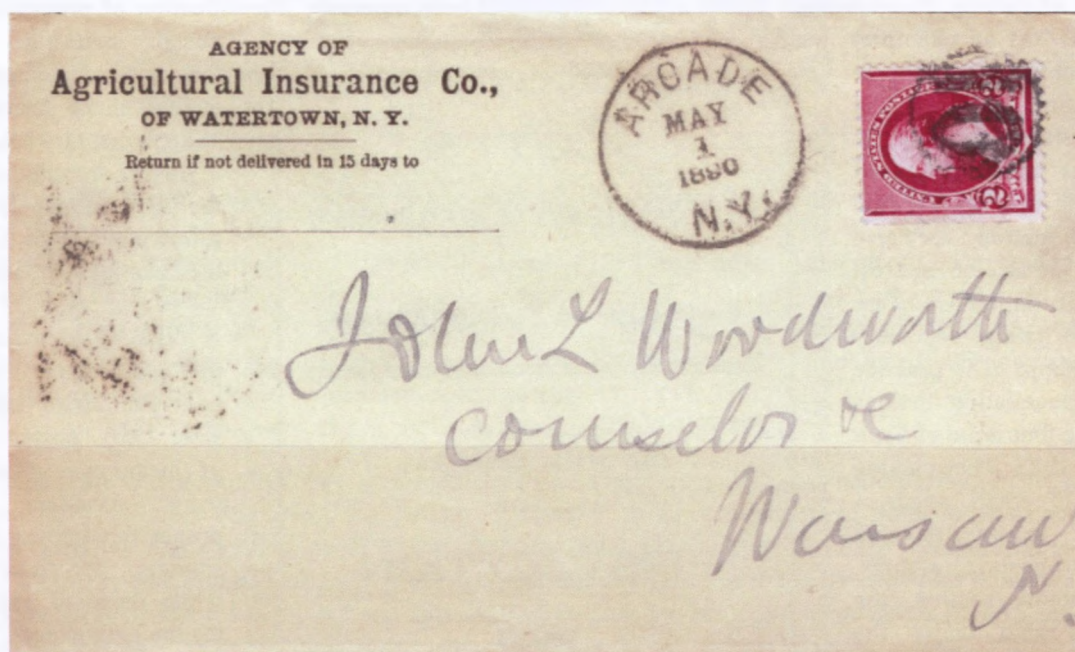 AGENCY OF
Agricultural Insurance Co.,
OF WATERTOWN, N. Y.
Return if not delivered in 15 days to
ARCADE
MAY
1
1890
N.Y.
UNITED STATES POSTAGE
2 2
John L Woodworth
Counselor &c
Warsaw
N.